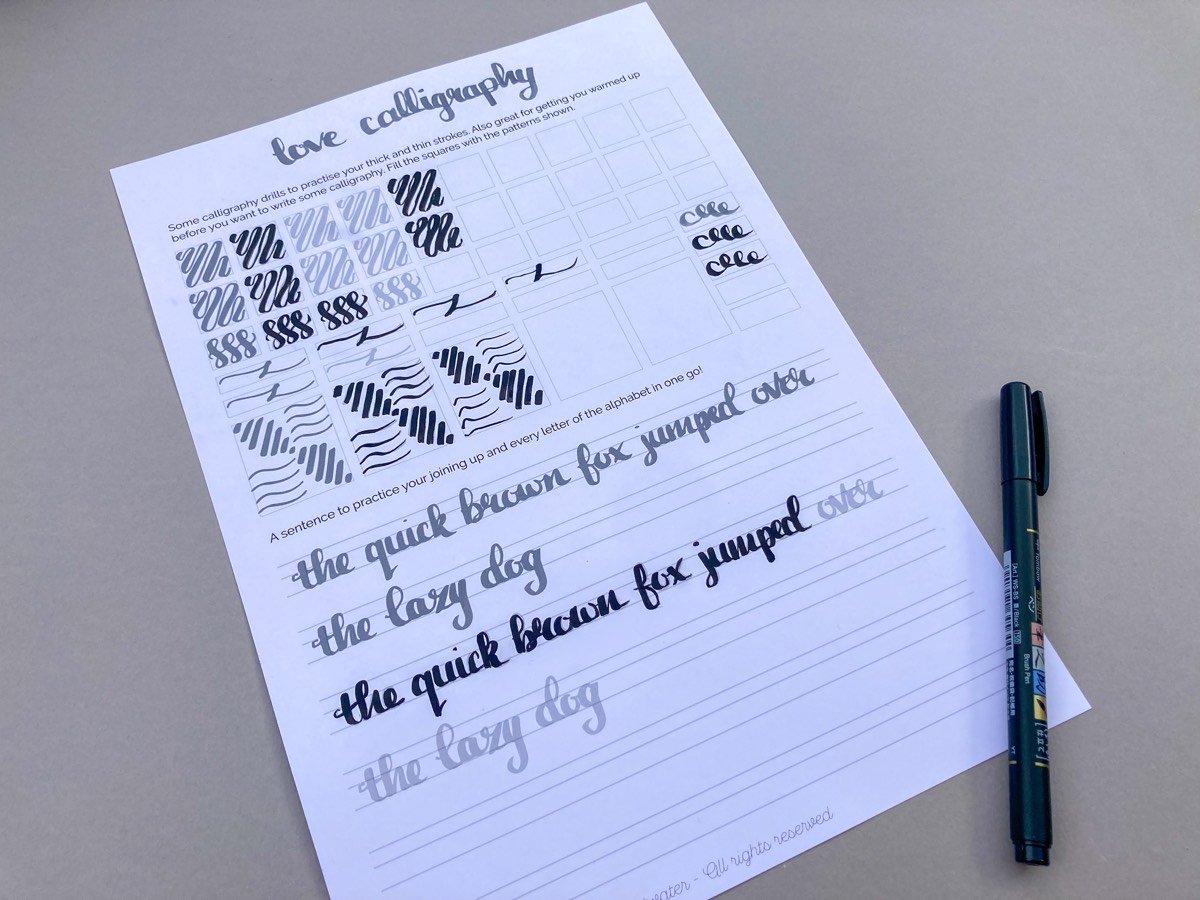 love calligraphy
Some calligraphy drills to practise your thick and thin strokes. Also great for getting you warmed up
before you want to write some calligraphy. Fill the squares with the patterns shown.
A sentence to practice your joining up and every letter of the alphabet in one go!
the quick brown fox jumped over
the lazy dog
the quick brown fox jumped over
the lazy dog
- All rights reserved
Tombow
[Art.] WS-BS
Black
150
Brush Pen